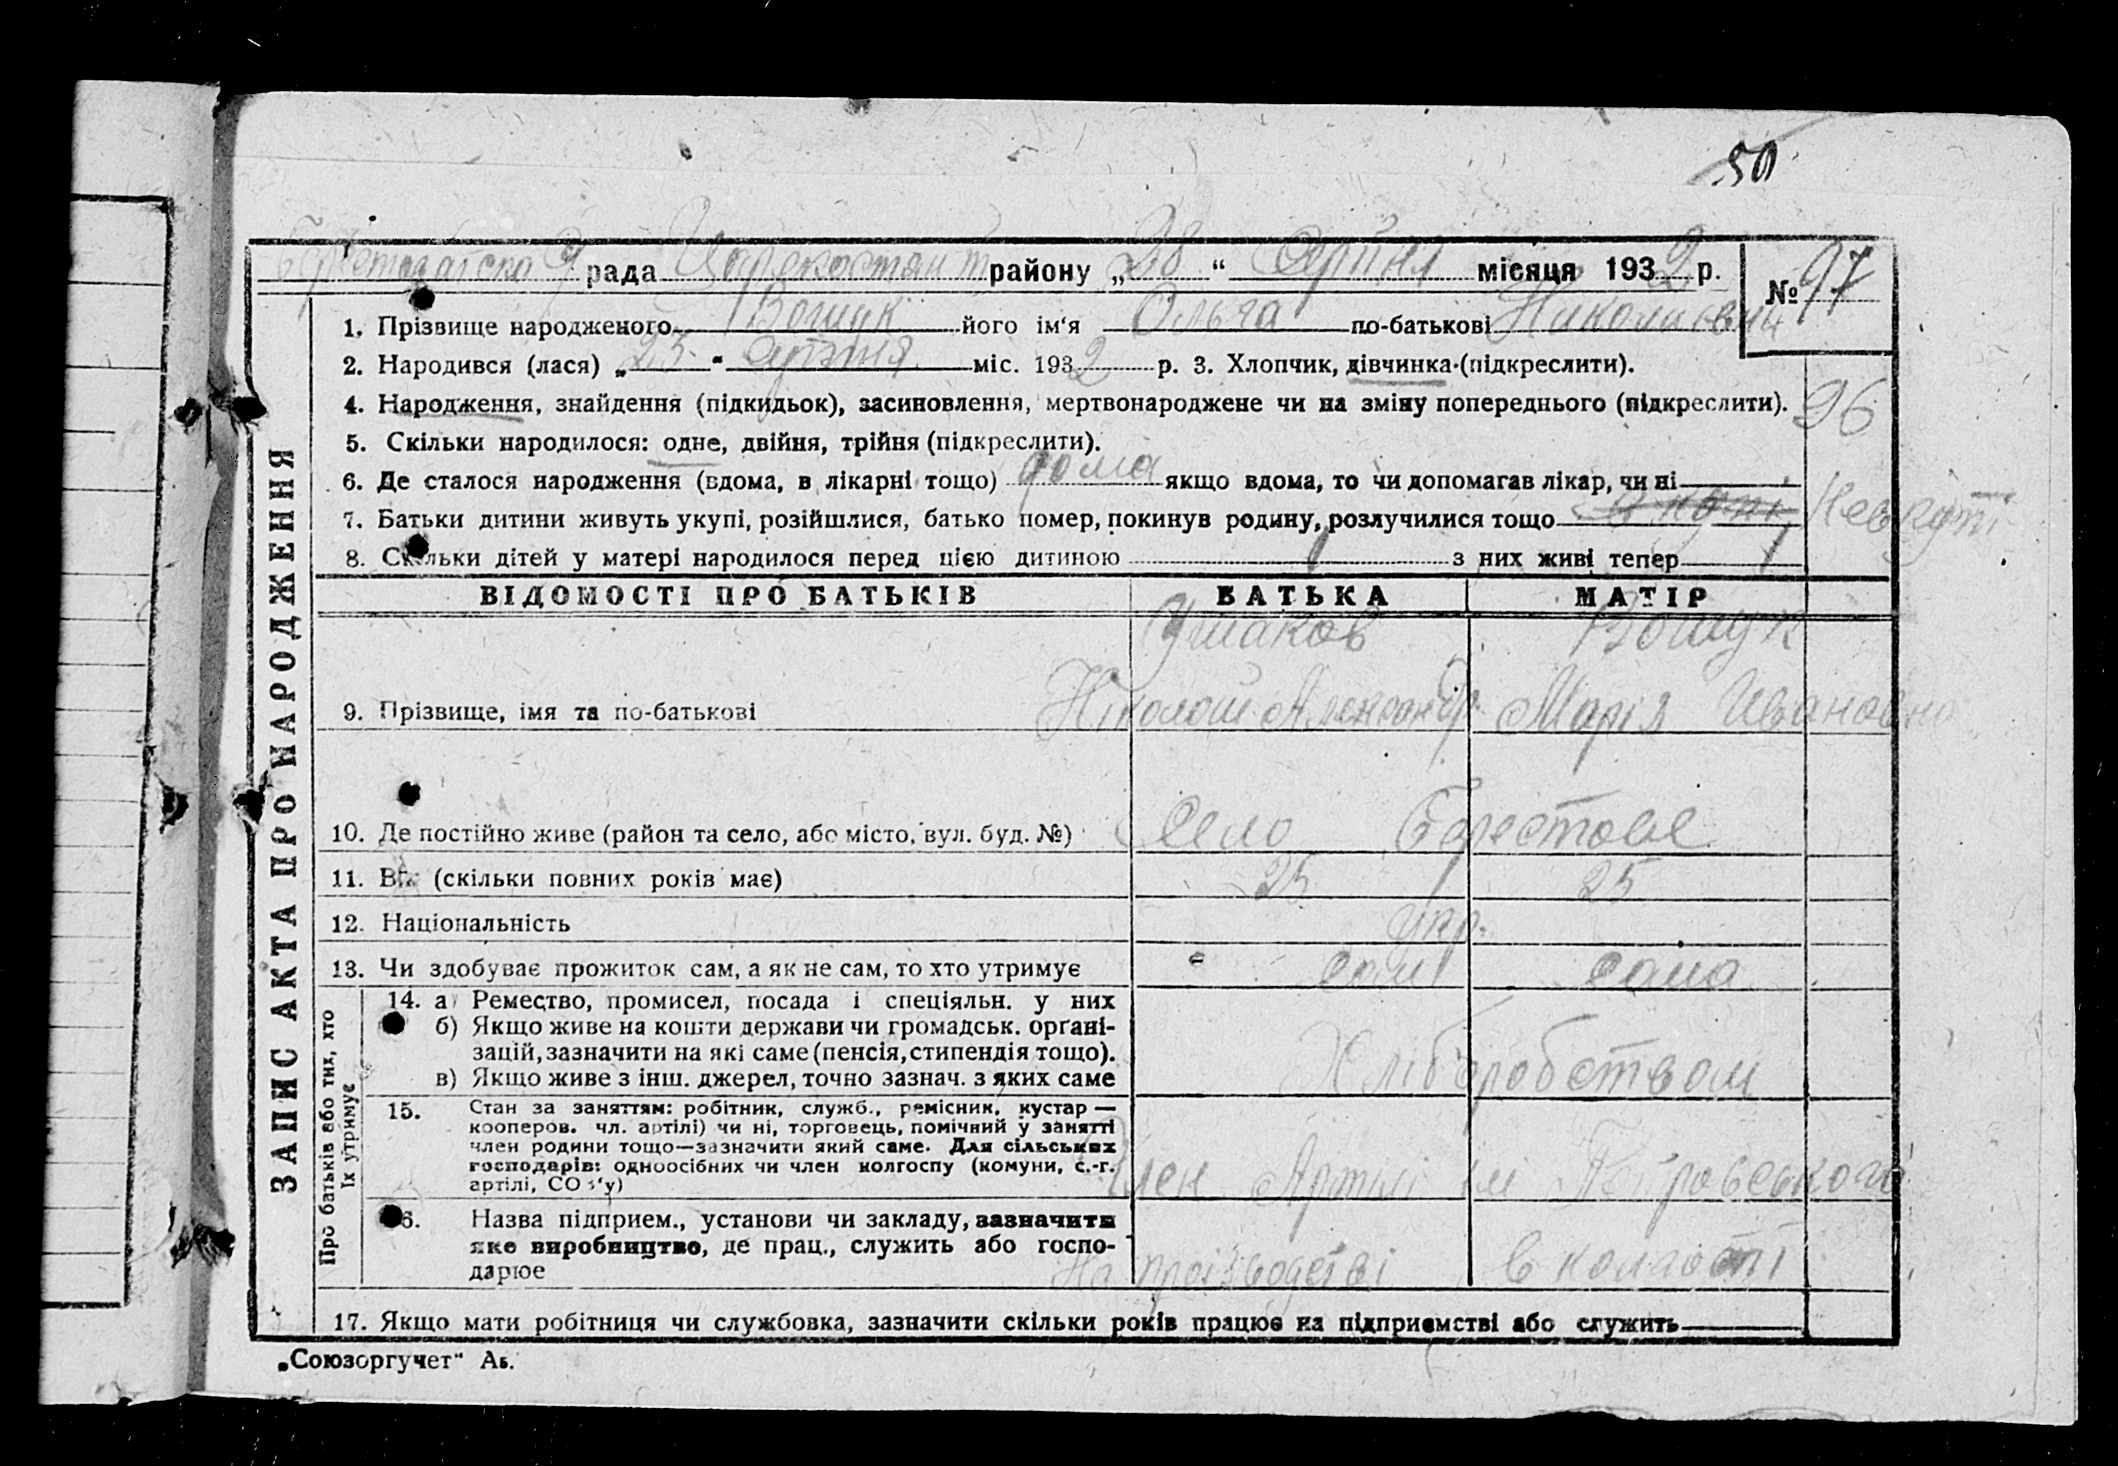 50
рада района „28“ Серпня місяця 1932 р. № 97
1. Прізвище народженого Вошук його ім'я Ольга по-батькові
2. Народився (лася) „25“ серпня міс. 1932 р. 3. Хлопчик, дівчинка (підкреслити).
96
4. Народження, знайдення (підкидьок), засиновлення, мертвонароджене чи на зміну попереднього (підкреслити).
5. Скільки народилося: одне, двійня, трійня (підкреслити).
6. Де сталося народження (вдома, в лікарні тощо) дома якщо вдома, то чи допомагав лікар, чи ні
7. Батьки дитини живуть укупі, розійшлися, батько помер, покинув родину, розлучилися тощо вкупі Невкупі
8. Скільки дітей у матері народилося перед цією дитиною 1 з них живі тепер 1
ЗАПИС АКТА ПРО НАРОДЖЕННЯ
ВІДОМОСТІ ПРО БАТЬКІВ БАТЬКА МАТІР
Ушаков Вошук
9. Прізвище, імя та по-батькові Ніколай Александр. Марія Ивановна
10. Де постійно живе (район та село, або місто, вул. буд. №) Село Берестове
11. Вік (скільки повних років має) 25 25
12. Національність укр.
13. Чи здобуває прожиток сам, а як не сам, то хто утримує сам сама
Про батьків або тих, хто
їх утримує
14. а) Ремество, промисел, посада і спеціяльн. у них
б) Якщо живе на кошти держави чи громадськ. органі-
зацій, зазначити на які саме (пенсія, стипендія тощо).
в) Якщо живе з інш. джерел, точно зазнач. з яких саме
Хліборобством
15. Стан за заняттям: робітник, служб., ремісник, кустар —
кооперов. чл. артілі) чи ні, торговець, помічний у занятті
член родини тощо—зазначити який саме. Для сільських
господарів: одноосібних чи член колгоспу (комуни, с.-г.
артілі, СО з'у)
Член Артілі ім Петровського
16. Назва підприєм., установи чи закладу, зазначити
яке виробництво, де прац., служить або госпо-
дарює
На производстві в колгоспі
17. Якщо мати робітниця чи службовка, зазначити скільки років працює на підприємстві або служить
„Союзоргучет“ Аб.